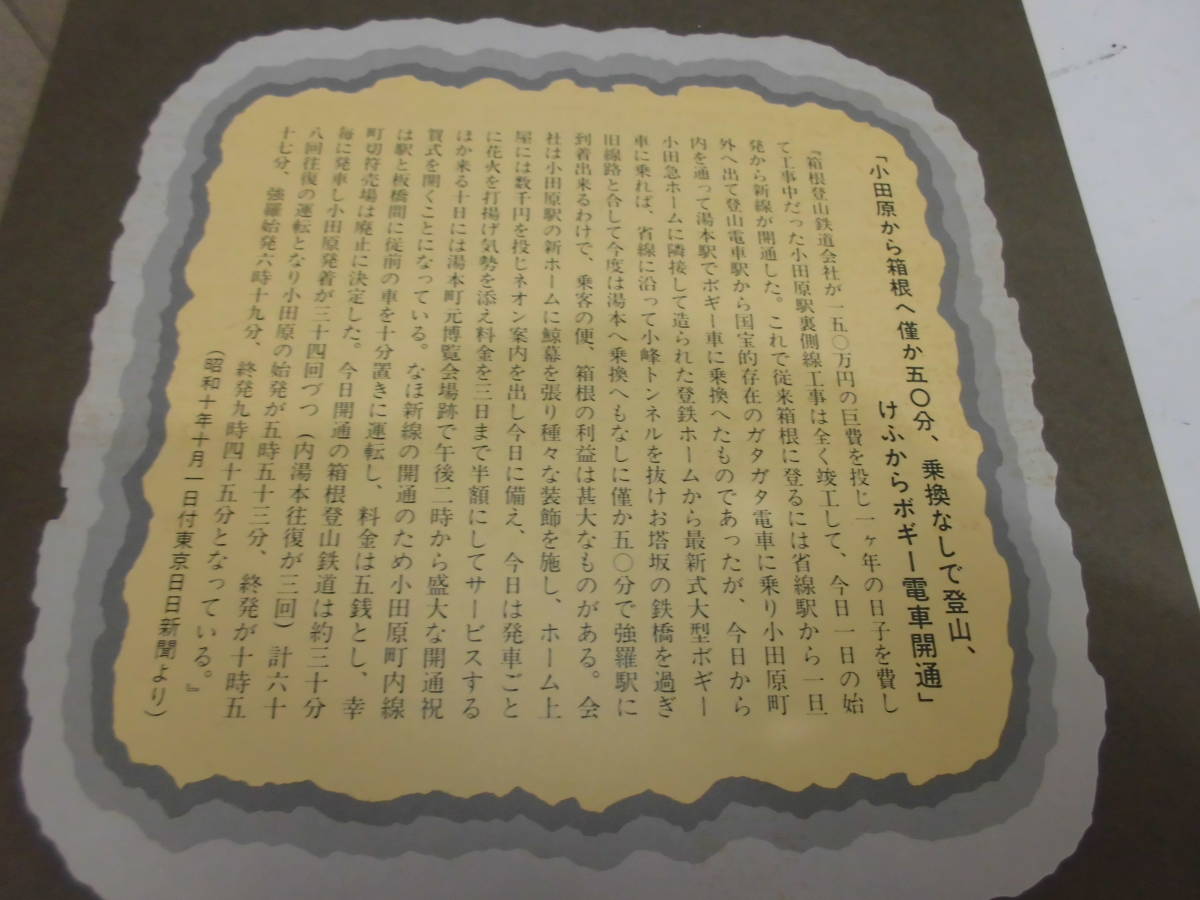 「小田原から箱根へ僅か五〇分、乗換なしで登山、
けふからボギー電車開通」
『箱根登山鉄道会社が一五〇万円の巨費を投じ一ヶ年の日子を費し
て工事中だった小田原駅裏側線工事は全く竣工して、今日一日の始
発から新線が開通した。これで従来箱根に登るには省線駅から一旦
外へ出て登山電車駅から国宝的存在のガタガタ電車に乗り小田原町
内を通って湯本駅でボギー車に乗換へたものであったが、今日から
小田急ホームに隣接して造られた登鉄ホームから最新式大型ボギー
車に乗れば、省線に沿って小峰トンネルを抜けお塔坂の鉄橋を過ぎ
旧線路と合して今度は湯本へ乗換へもなしに僅か五〇分で強羅駅に
到着出来るわけで、乗客の便、箱根の利益は甚大なものがある。会
社は小田原駅の新ホームに鯨幕を張り種々な装飾を施し、ホーム上
屋には数千円を投じネオン案内を出し今日に備え、今日は発車ごと
に花火を打揚げ気勢を添え料金を三日まで半額にしてサービスする
ほか来る十日には湯本町元博覧会場跡で午後二時から盛大な開通祝
賀式を開くことになっている。なほ新線の開通のため小田原町内線
は駅と板橋間に従前の車を十分置きに運転し、料金は五銭とし、幸
町切符売場は廃止に決定した。今日開通の箱根登山鉄道は約三十分
毎に発車し小田原発着が三十四回づつ（内湯本往復が三回）計六十
八回往復の運転となり小田原の始発が五時五十三分、終発が十時五
十七分、強羅始発六時十九分、終発九時四十五分となっている。』
（昭和十年十月一日付東京日日新聞より）